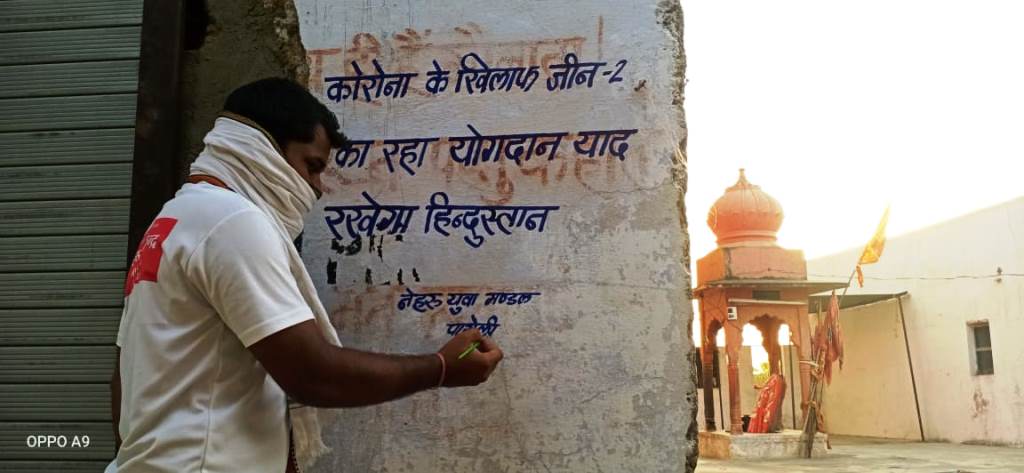 कोरोना के खिलाफ जीन-2
का रहा योगदान याद
रखेगा हिन्दुस्तान
नेहरु युवा मण्डल
OPPO A9